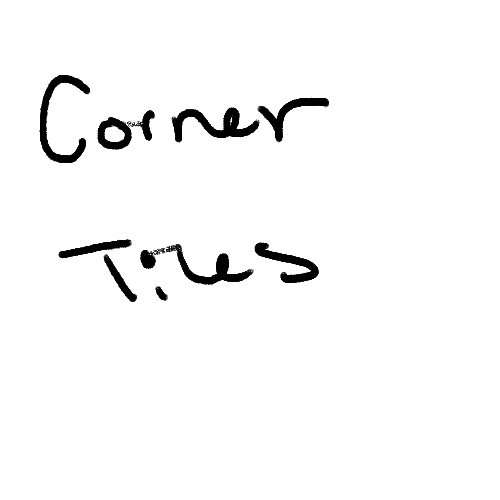 Corner
Tiles